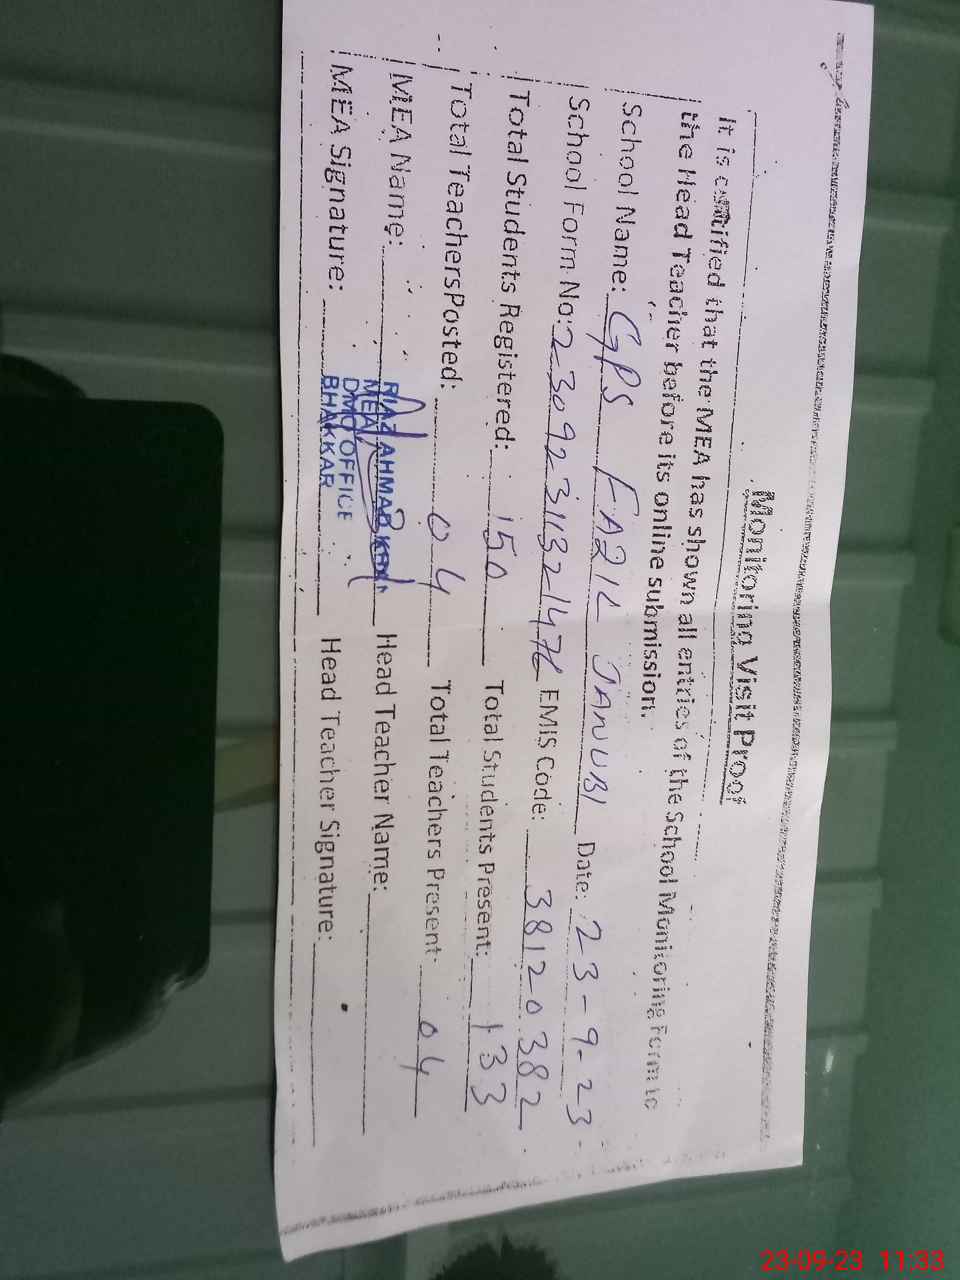 Monitoring Visit Proof
It is certified that the MEA has shown all entries of the School Monitoring Form to
the Head Teacher before its online submission.
School Name: GPS FAZIL JANUBI Date: 23-9-23
School Form No: EMIS Code: 38120382
Total Students Registered: 150 Total Students Present: 133
Total Teachers Posted: 04 Total Teachers Present 04
MEA Name: RIAZ AHMAD KHAN Head Teacher Name:
MEA
DMO OFFICE
BHAKKAR
MEA Signature: Head Teacher Signature:
23-09-23 11:33